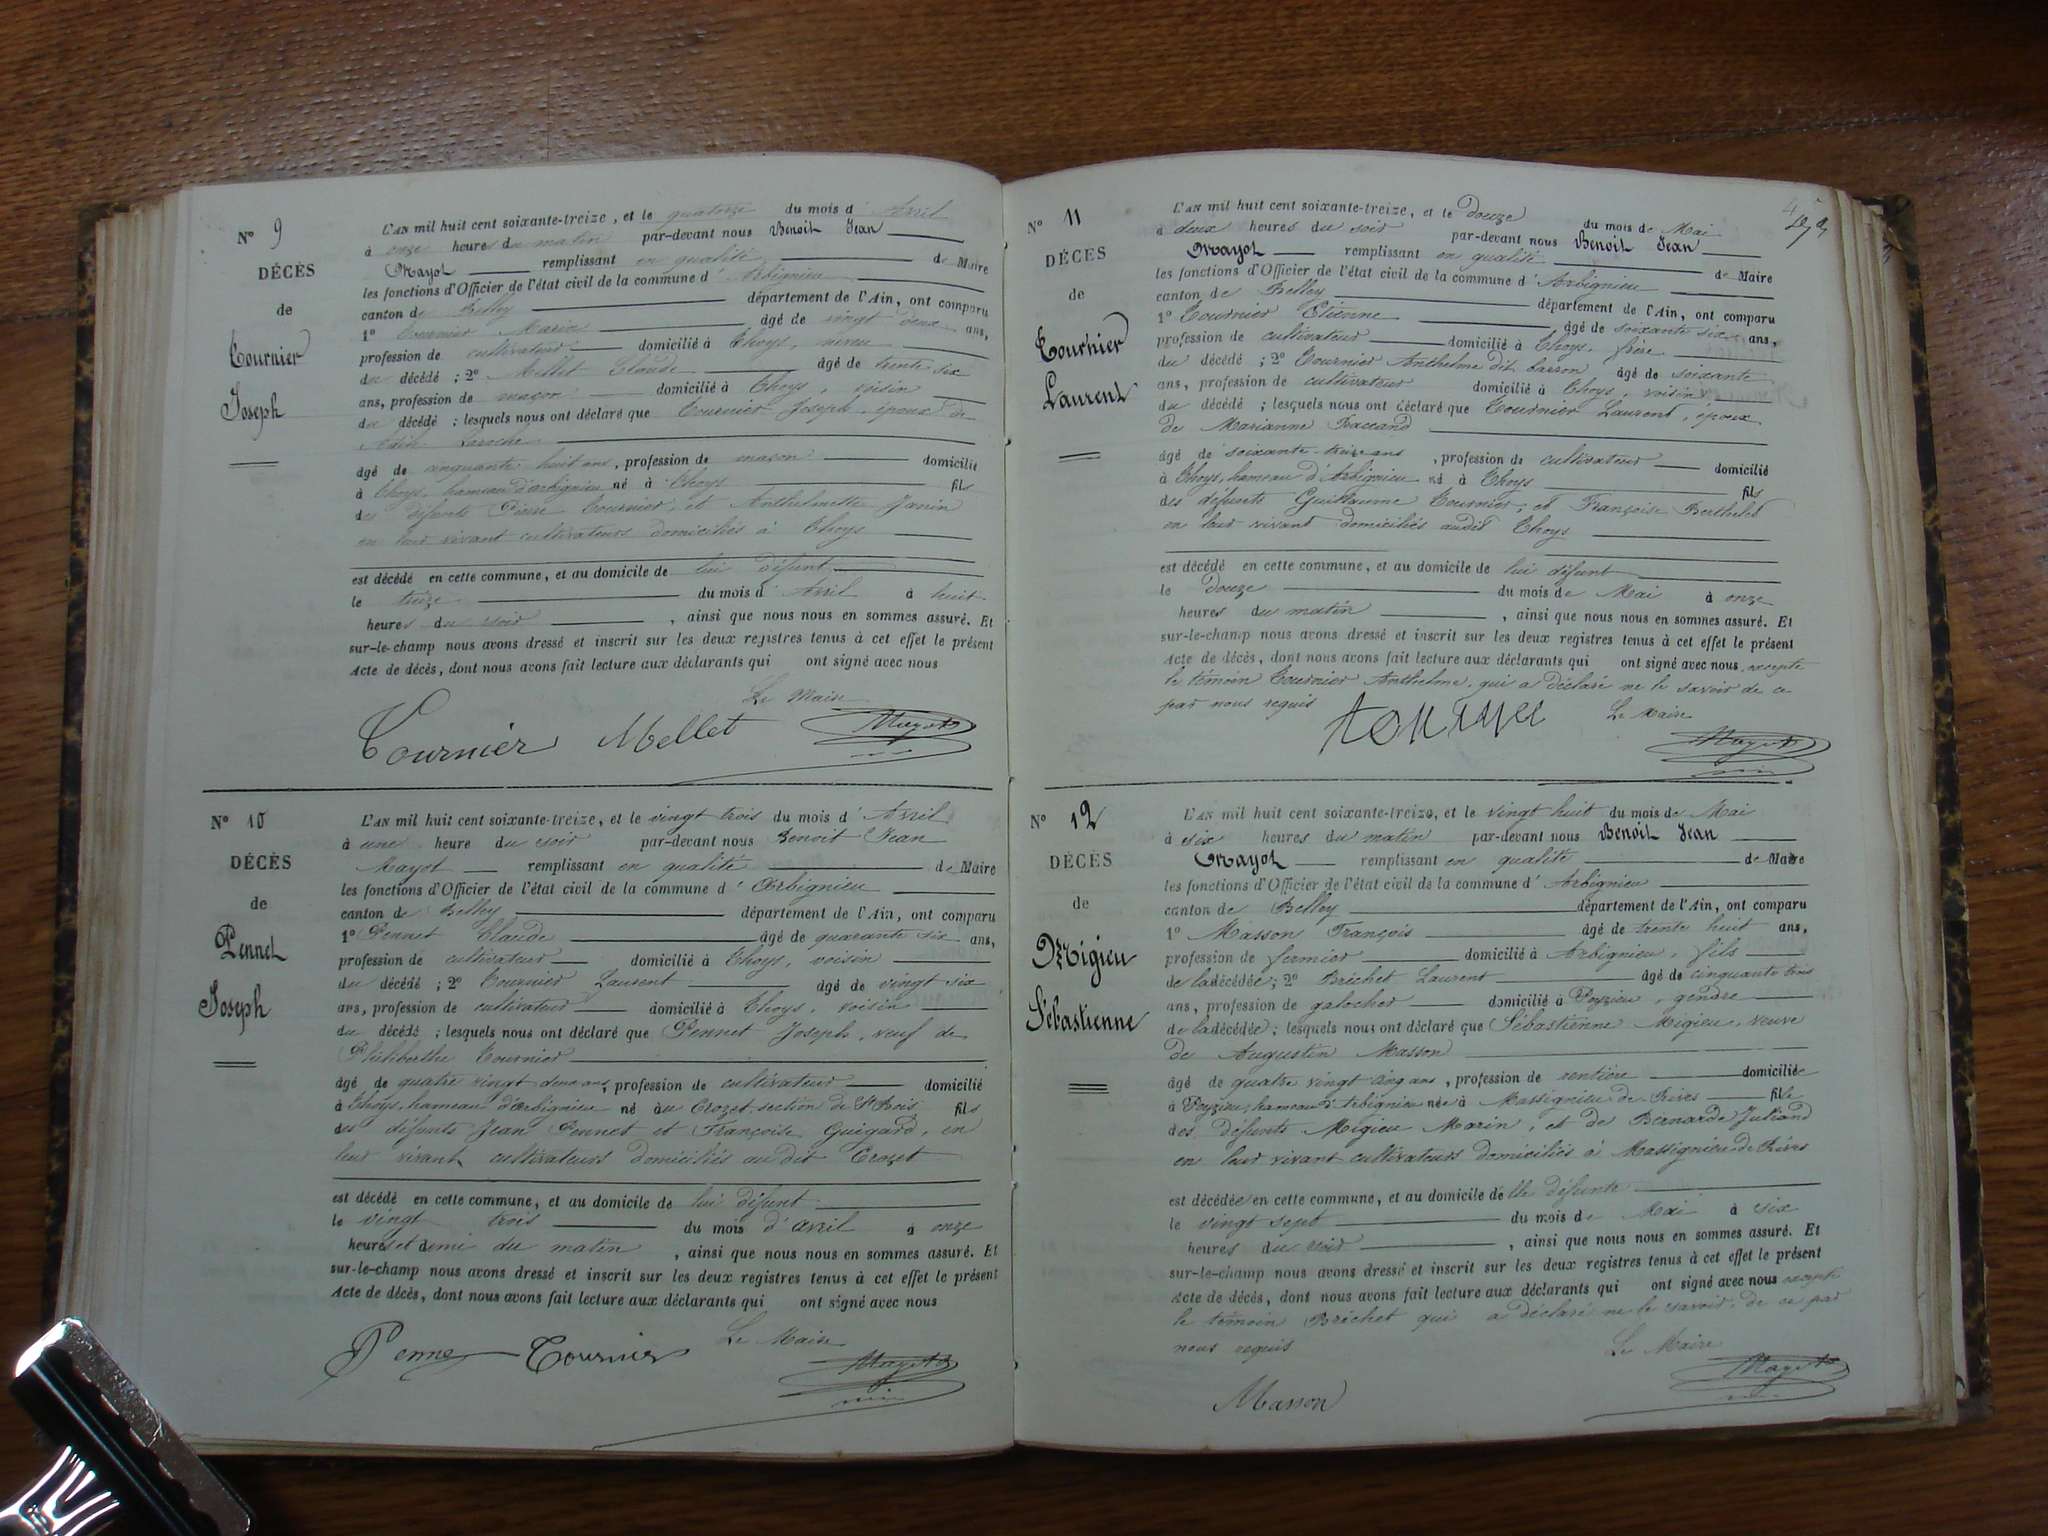 N° 9
DÉCÈS
de
Tournier
Joseph
L'AN mil huit cent soixante-treize, et le quatorze du mois d' Avril
à onze heures du matin par-devant nous Benoit Jean
Mayot remplissant en qualité de Maire
les fonctions d'Officier de l'état civil de la commune d' Arbignieu
canton de Belley département de l'Ain, ont comparu
1° Tournier Marin âgé de vingt deux ans,
profession de cultivateur domicilié à Thoys, neveu
du décédé ; 2° Mellet Claude âgé de trente six
ans, profession de maçon domicilié à Thoys, voisin
du décédé ; lesquels nous ont déclaré que Tournier Joseph, époux de
Laroche
âgé de cinquante huit ans, profession de maçon domicilié
à Thoys, hameau d'arbignieu né à Thoys fils
des défunts Pierre Tournier, et Anthelmette Janin
en leur vivant cultivateurs domiciliés à Thoys
est décédé en cette commune, et au domicile de lui défunt
le treize du mois d' Avril à huit
heures du soir , ainsi que nous nous en sommes assuré. Et
sur-le-champ nous avons dressé et inscrit sur les deux registres tenus à cet effet le présent
Acte de décès, dont nous avons fait lecture aux déclarants qui ont signé avec nous
Le Maire
Tournier Mellet Mayot
N° 10
DÉCÈS
de
Pennet
Joseph
L'AN mil huit cent soixante-treize, et le vingt trois du mois d' Avril
à une heure du soir par-devant nous Benoit Jean
Mayot remplissant en qualité de Maire
les fonctions d'Officier de l'état civil de la commune d' Arbignieu
canton de Belley département de l'Ain, ont comparu
1° Pennet Claude âgé de quarante six ans,
profession de cultivateur domicilié à Thoys, voisin
du décédé ; 2° Tournier Laurent âgé de vingt six
ans, profession de cultivateur domicilié à Thoys, voisin
du décédé ; lesquels nous ont déclaré que Pennet Joseph, veuf de
Philiberthe Tournier
âgé de quatre vingt deux ans, profession de cultivateur domicilié
à Thoys, hameau d'arbignieu né au Crozet, section de St Bois fils
des défunts Jean Pennet et Françoise Guigard, en
leur vivant cultivateurs domiciliés au dit Crozet
est décédé en cette commune, et au domicile de lui défunt
le vingt trois du mois d'avril à onze
heures et demi du matin , ainsi que nous nous en sommes assuré. Et
sur-le-champ nous avons dressé et inscrit sur les deux registres tenus à cet effet le présent
Acte de décès, dont nous avons fait lecture aux déclarants qui ont signé avec nous
Le Maire
Tournier Mayot
N° 11
DÉCÈS
de
Tournier
Laurent
L'AN mil huit cent soixante-treize, et le Douze du mois de Mai
à deux heures du soir par-devant nous Benoit Jean
Mayot remplissant en qualité de Maire
les fonctions d'Officier de l'état civil de la commune d' Arbignieu
canton de Belley département de l'Ain, ont comparu
1° Tournier Etienne âgé de soixante six ans,
profession de cultivateur domicilié à Thoys, frère
du décédé ; 2° Tournier Anthelme dit barron âgé de soixante
ans, profession de cultivateur domicilié à Thoys, voisin
du décédé ; lesquels nous ont déclaré que Tournier Laurent, époux
de Marianne Baccand
âgé de soixante-treize ans , profession de cultivateur domicilié
à Thoys, hameau d'Arbignieu né à Thoys fils
des défunts Guillaume Tournier, et Françoise Berthelet
en leur vivant domiciliés audit Thoys
est décédé en cette commune, et au domicile de lui défunt
le Douze du mois de Mai à onze
heures du matin , ainsi que nous nous en sommes assuré. Et
sur-le-champ nous avons dressé et inscrit sur les deux registres tenus à cet effet le présent
Acte de décès, dont nous avons fait lecture aux déclarants qui ont signé avec nous excepté
le témoin Tournier Anthelme, qui a déclaré ne le savoir de ce
par nous requis Le Maire
Mayot
N° 12
DÉCÈS
de
Migieu
Sébastienne
L'AN mil huit cent soixante-treize, et le vingt huit du mois de Mai
à six heures du matin par-devant nous Benoit Jean
Mayot remplissant en qualité de Maire
les fonctions d'Officier de l'état civil de la commune d' Arbignieu
canton de Belley département de l'Ain, ont comparu
1° Masson François âgé de trente huit ans,
profession de fermier domicilié à Arbignieu, fils
de la décédée ; 2° Bréchet Laurent âgé de cinquante trois
ans, profession de galocher domicilié à Peyzieu, gendre
de la décédée ; lesquels nous ont déclaré que Sébastienne Migieu, veuve
de Augustin Masson
âgé de quatre vingt cinq ans , profession de rentière domiciliée
à Peyzieu, hameau d'Arbignieu née à Massignieu de Rives fille
des défunts Migieu Marin, et de Bernarde Julliand
en leur vivant cultivateurs domiciliés à Massignieu de Rives
est décédée en cette commune, et au domicile de elle défunte
le vingt sept du mois de Mai à six
heures du soir , ainsi que nous nous en sommes assuré. Et
sur-le-champ nous avons dressé et inscrit sur les deux registres tenus à cet effet le présent
Acte de décès, dont nous avons fait lecture aux déclarants qui ont signé avec nous excepté
le témoin Bréchet qui a déclaré ne le savoir, de ce par
nous requis Le Maire
Masson Mayot